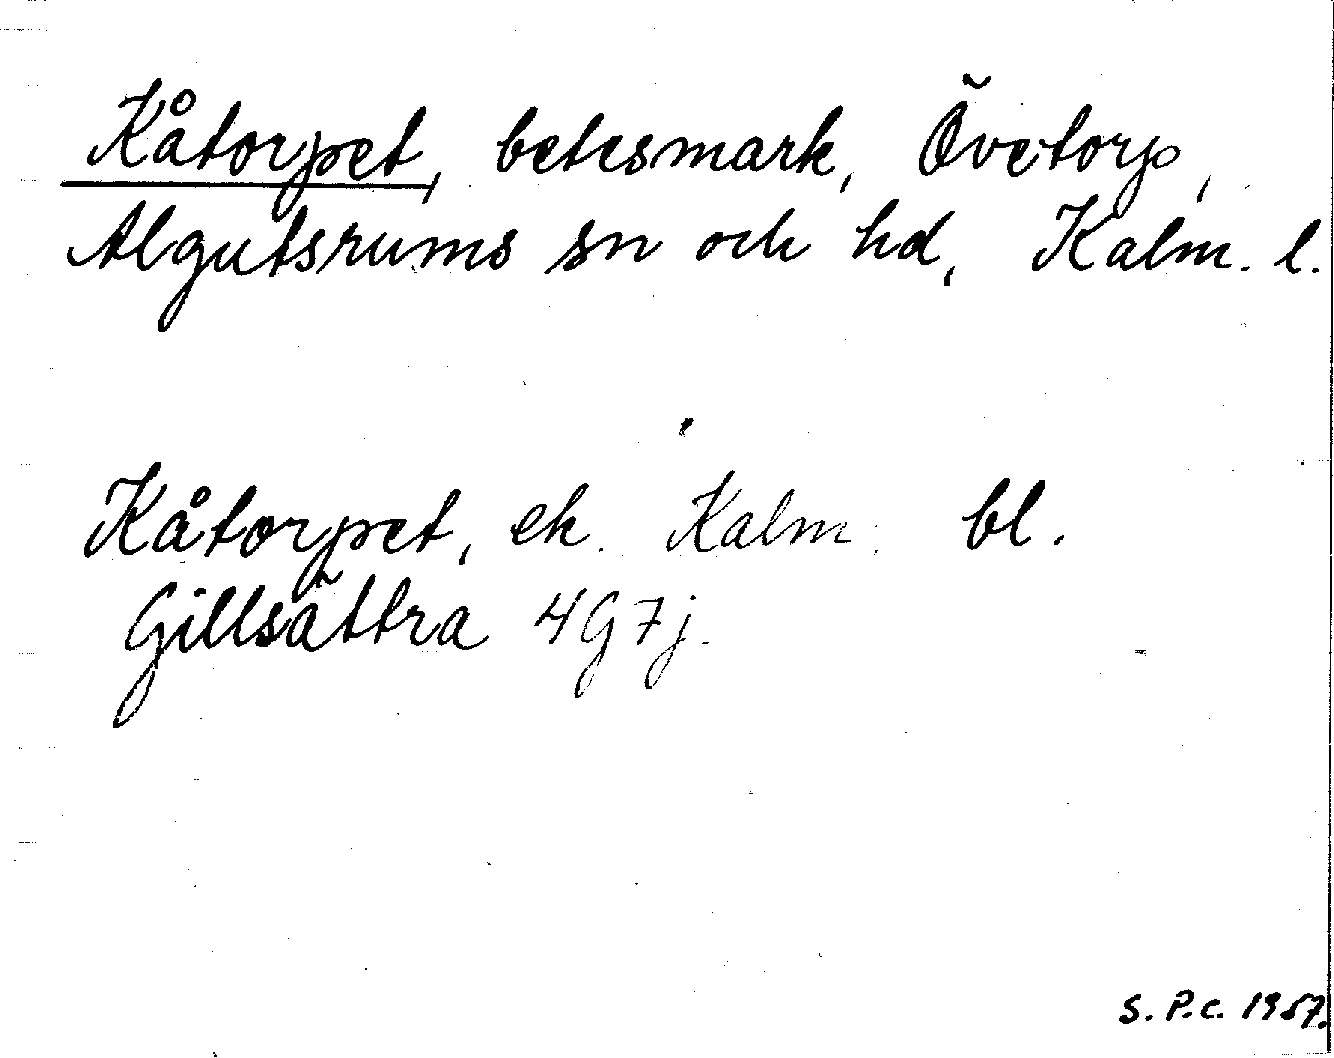 Kåtorpet, betesmark, Övetorp,
Algutsrums sn och hd, Kalm. l.
Kåtorpet, ek. Kalm. bl.
Gillsättra 4G7j.
S. P.C. 1957.